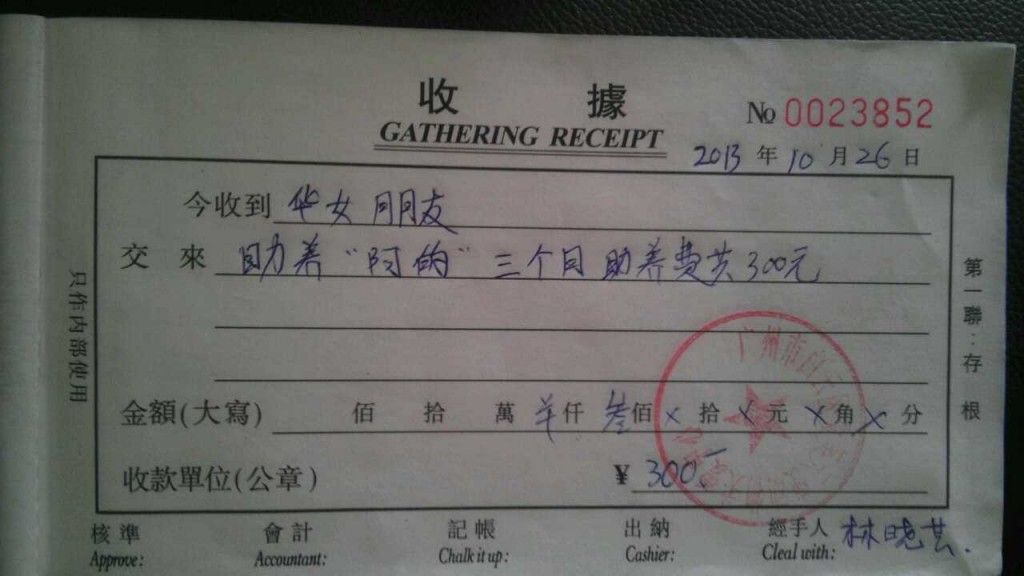 收 據
GATHERING RECEIPT
No 0023852
2013 年 10 月 26 日
今收到 华女朋友
交 來 助养“阿的”三个月助养费共300元
金額(大寫) 佰 拾 萬 羊仟 叁佰 x 拾 x 元 x 角 x 分
收款單位(公章) ¥ 300.—
核準 會計 記帳 出納 經手人
Approve: Accountant: Chalk it up: Cashier: Cleal with:
只作内部使用
第一聯:存根
广州市白云